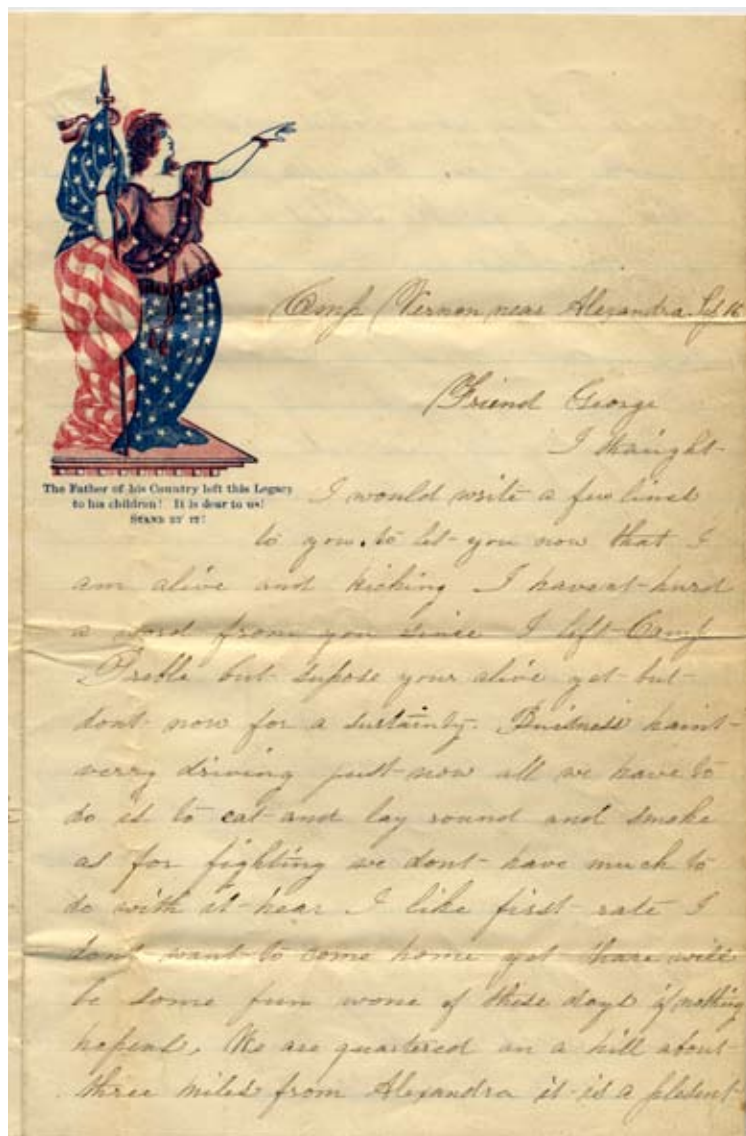 Camp Vernon near Alexandra Sep 16
Friend George
I thaught
The Father of his Country left this Legacy
to his children! It is dear to us!
STAND BY IT!
I would write a few lines
to you. to let you now that I
am alive and kicking I have at hurd
a word from you since I left Camp
Preble but supose your alive yet but
dont now for a surtainty. Buisness haint
verry driving just now all we have to
do is to eat and lay round and smoke
as for fighting we dont have much to
do with it hear I like first rate I
dont want to come home yet thare will
be some fun wone of these days if nothing
hapens. We are quartered on a hill about
three miles from Alexandra it is a plesent